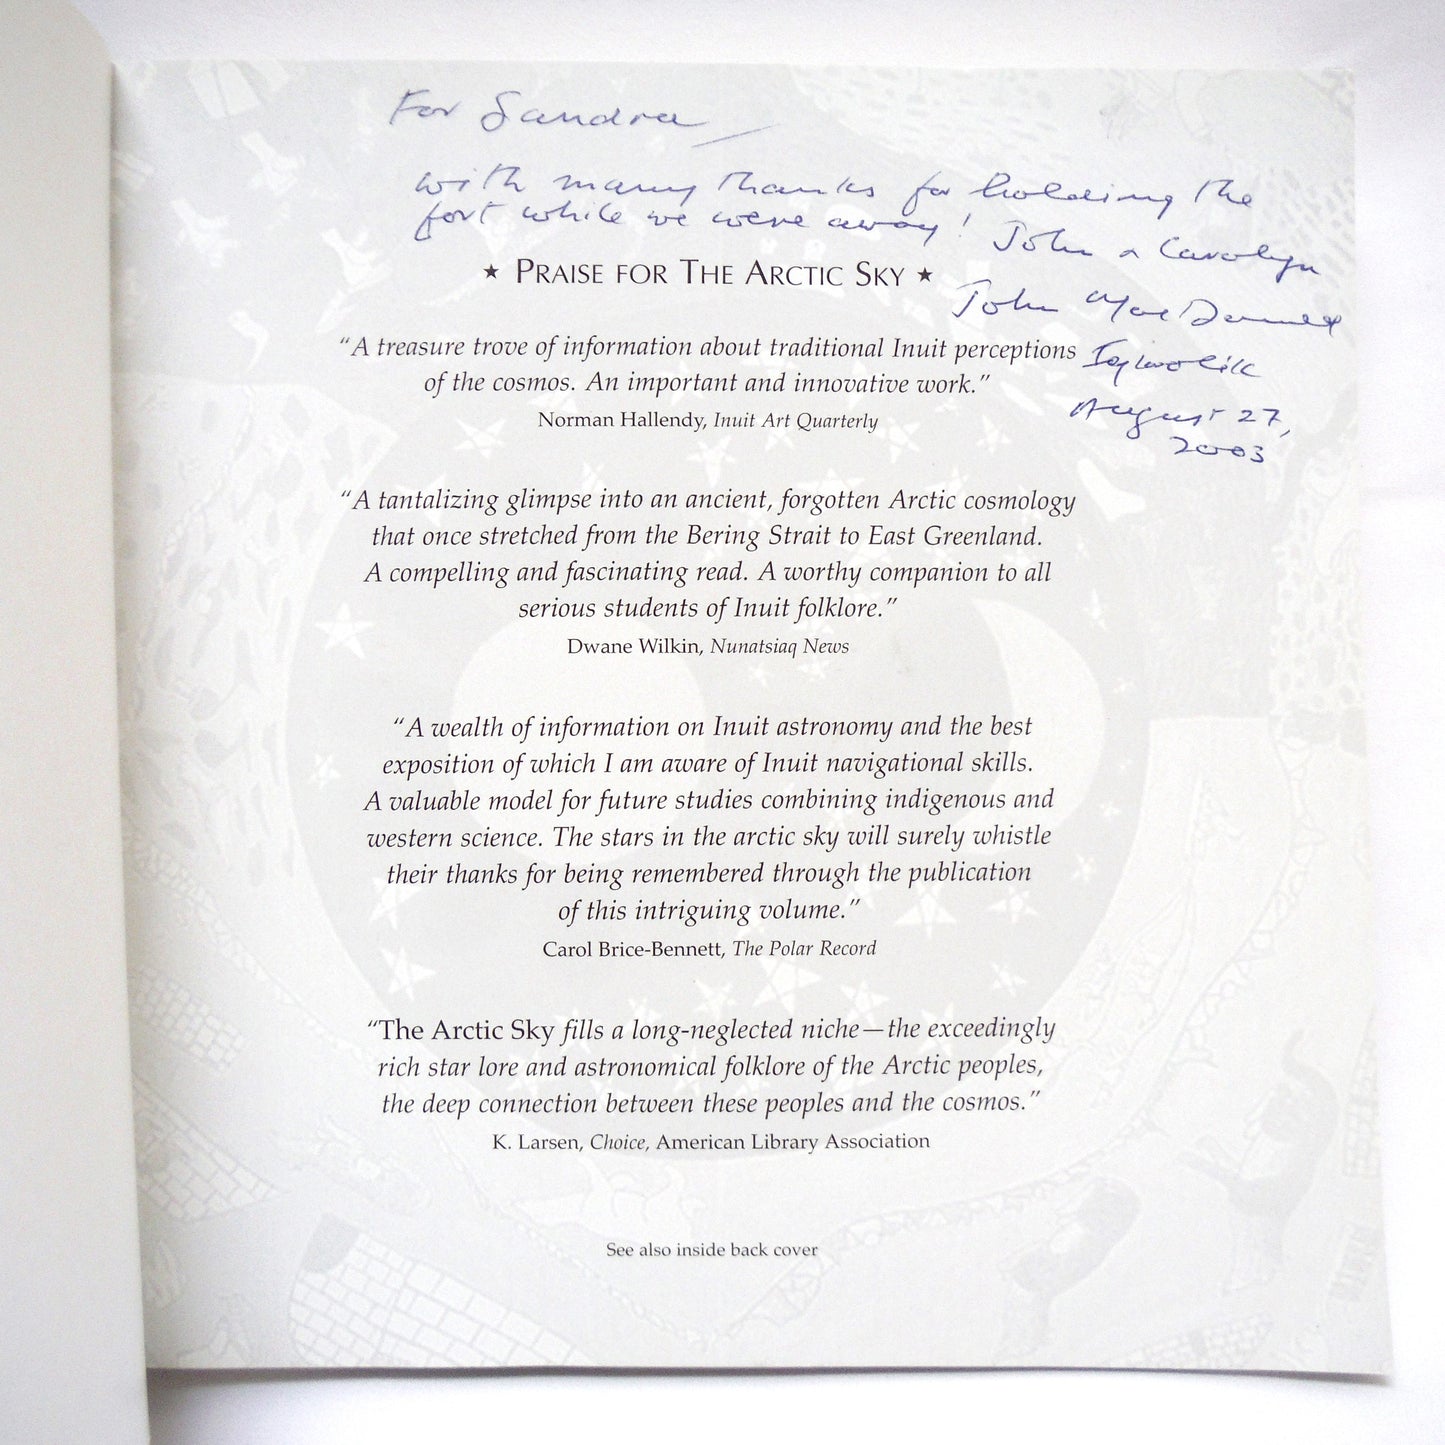 For Sandra
with many thanks for holding the
fort while we were away! John & Carolyn
★ PRAISE FOR THE ARCTIC SKY ★
John MacDonald
“A treasure trove of information about traditional Inuit perceptions
Igloolik
of the cosmos. An important and innovative work.”
August 27,
Norman Hallendy, Inuit Art Quarterly
2003
“A tantalizing glimpse into an ancient, forgotten Arctic cosmology
that once stretched from the Bering Strait to East Greenland.
A compelling and fascinating read. A worthy companion to all
serious students of Inuit folklore.”
Dwane Wilkin, Nunatsiaq News
“A wealth of information on Inuit astronomy and the best
exposition of which I am aware of Inuit navigational skills.
A valuable model for future studies combining indigenous and
western science. The stars in the arctic sky will surely whistle
their thanks for being remembered through the publication
of this intriguing volume.”
Carol Brice-Bennett, The Polar Record
“The Arctic Sky fills a long-neglected niche—the exceedingly
rich star lore and astronomical folklore of the Arctic peoples,
the deep connection between these peoples and the cosmos.”
K. Larsen, Choice, American Library Association
See also inside back cover